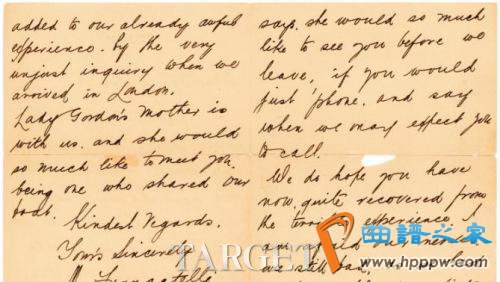 added to our already awful
experience. by the very
unjust inquiry when we
arrived in London.
Lady Gordon's Mother is
with us. and she would
so much like to meet you.
being one who shared our
boat.
Kindest Regards.
Yours Sincerely
says. she would so much
like to see you before we
leave, if you would
just 'phone. and say
when we may expect you
to call.
We do hope you have
now, quite recovered from
the terrible experience. I
am afraid
we still
TARGET
曲谱之家
www.hppw.com